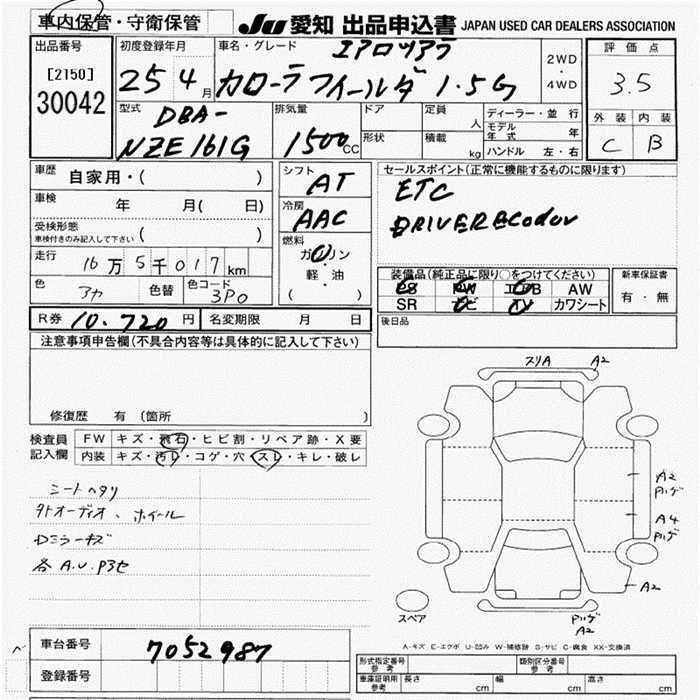 車内保管・守衛保管
JU 愛知 出品申込書 JAPAN USED CAR DEALERS ASSOCIATION
出品番号
[2150]
30042
初度登録年月
25 4月
車名・グレード
エアロツアラ
カローラフィールダ 1.5G
2WD
・
4WD
評価点
3.5
外装 内装
C B
型式
DBA-
NZE161G
排気量
1500cc
ドア
形状
定員
人
積載
kg
ディーラー・並行
モデル年式 年
ハンドル 左・右
車歴
自家用・( )
車検
年 月( 日)
受検形態
車検付きのみ記入して下さい ( )
走行
16万5千017km
色
アカ
色替
色コード
3P0
シフト
AT
冷房
AAC
燃料
ガソリン
・
軽・油
( )
セールスポイント(正常に機能するものに限ります)
ETC
DRIVERECodor
装備品(純正品に限り○をつけてください)
PS PW エアB AW
SR ナビ TV カワシート
新車保証書
有・無
R券 10.720円
名変期限 月 日
後日品
注意事項申告欄(不具合内容等は具体的に記入して下さい)
修復歴 有 (箇所 )
検査員
記入欄
FW キズ・飛石・ヒビ割・リペア跡・X要
内装 キズ・汚レ・コゲ・穴・スレ・キレ・破レ
シートヘタリ
外オーディオ、ホイール
Dミラーキズ
各A.U.P3セ
スリA A2
A2
ハゲ
A4
ハゲ
A2
スペア
ハゲ
A2
A-キズ E-エクボ U-凹み W-補修跡 S-サビ C-腐食 XX-交換済
車台番号
7052987
登録番号
形式指定番号
参考
類別区分番号
参考
車庫証明用
参考
長さ cm 幅 cm 高さ cm